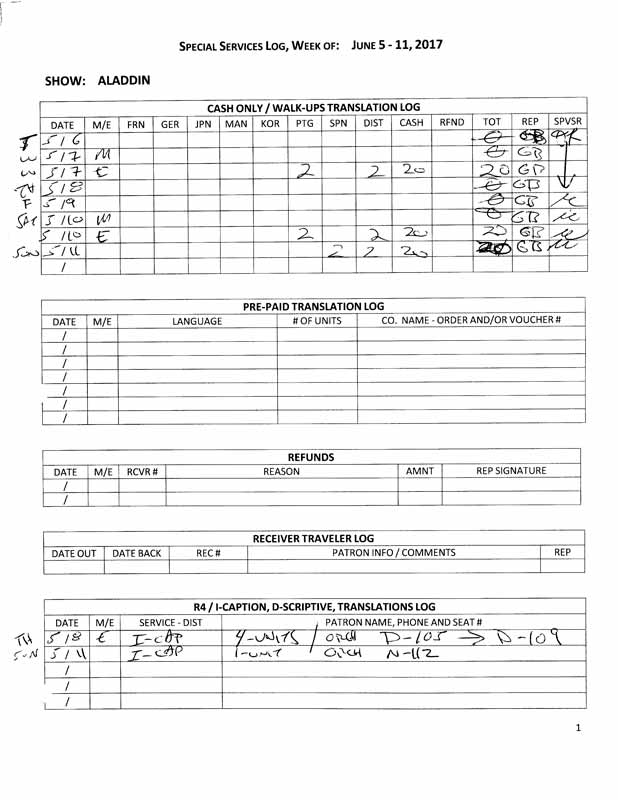 SPECIAL SERVICES LOG, WEEK OF: JUNE 5 - 11, 2017
SHOW: ALADDIN
CASH ONLY / WALK-UPS TRANSLATION LOG
DATE M/E FRN GER JPN MAN KOR PTG SPN DIST CASH RFND TOT REP SPVSR
T 5/6 0 GB
W 5/7 M 0 GB
W 5/7 E 2 2 20 20 GB
TH 5/8 0 GB
F 5/9 0 GB
SAT 5/10 M 0 GB
S 5/10 E 2 2 20 20 GB
SUN 5/11 2 2 20 20 GB
/
PRE-PAID TRANSLATION LOG
DATE M/E LANGUAGE # OF UNITS CO. NAME - ORDER AND/OR VOUCHER #
/
/
/
/
/
/
/
REFUNDS
DATE M/E RCVR # REASON AMNT REP SIGNATURE
/
/
RECEIVER TRAVELER LOG
DATE OUT DATE BACK REC # PATRON INFO / COMMENTS REP
R4 / I-CAPTION, D-SCRIPTIVE, TRANSLATIONS LOG
DATE M/E SERVICE - DIST PATRON NAME, PHONE AND SEAT #
TH 5/8 E I-CAP 4-UNITS / ORCH D-105 → D-109
SUN 5/11 I-CAP 1-UNIT ORCH N-112
/
/
/
1